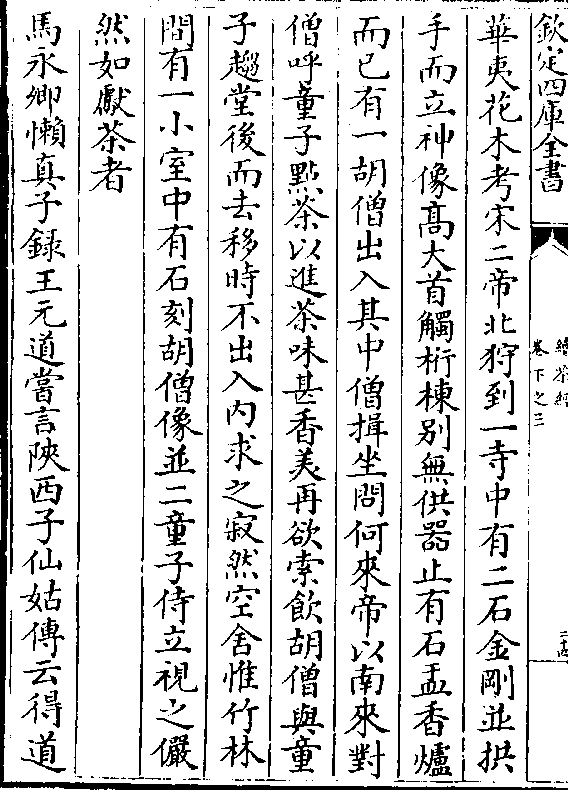 欽定四庫全書
續茶經
卷下之三
二十四
華夷花木考宋二帝北狩到一寺中有二石金剛並拱
手而立神像髙大首觸桁棟别無供器止有石盂香爐
而已有一胡僧出入其中僧揖坐問何來帝以南來對
僧呼童子㸃茶以進茶味甚香美再欲索飲胡僧與童
子趨堂後而去移時不出入内求之寂然空舍惟竹林
間有一小室中有石刻胡僧像並二童子侍立視之儼
然如獻茶者
馬永卿懶真子録王元道嘗言陜西子仙姑傳云得道